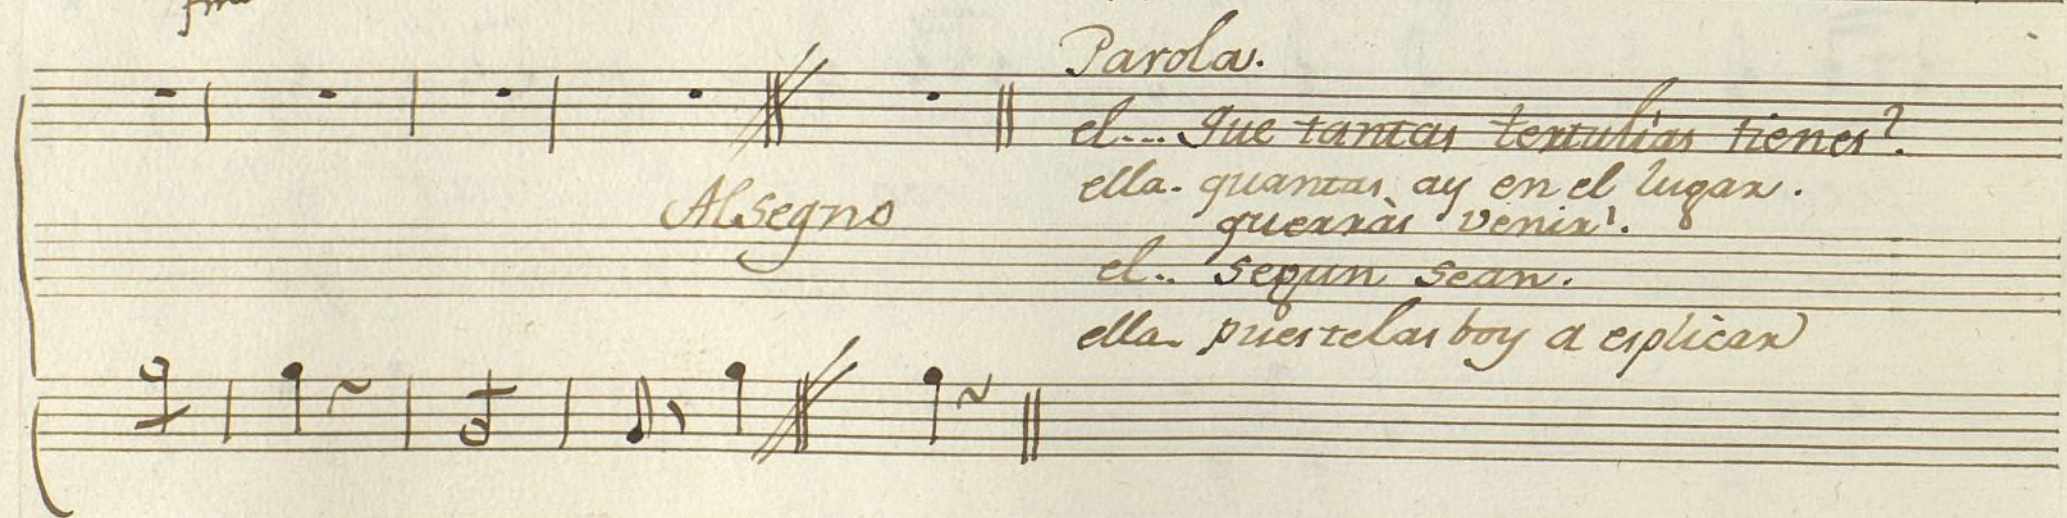 Parola.
el.... que tantas tertulias tienes?
ella. quantas ay en el lugar.
Al segno
querràs venir?.
el.. segun sean.
ella. pues te las boy a esplicar